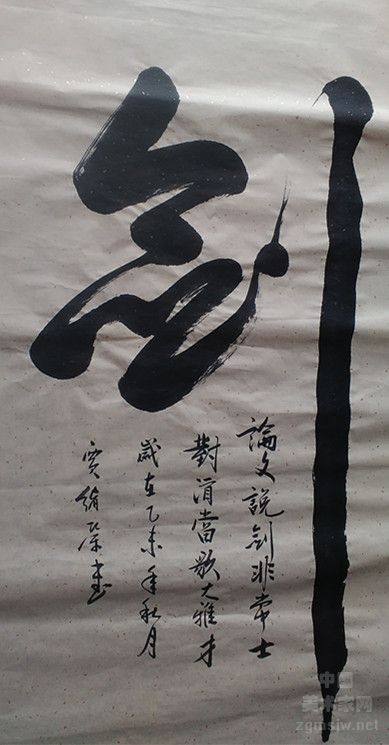 劍
論文說劍非常士
對酒當歌大雅才
歲在乙未年秋月
書
中国
美术家网
zgmsjw.net